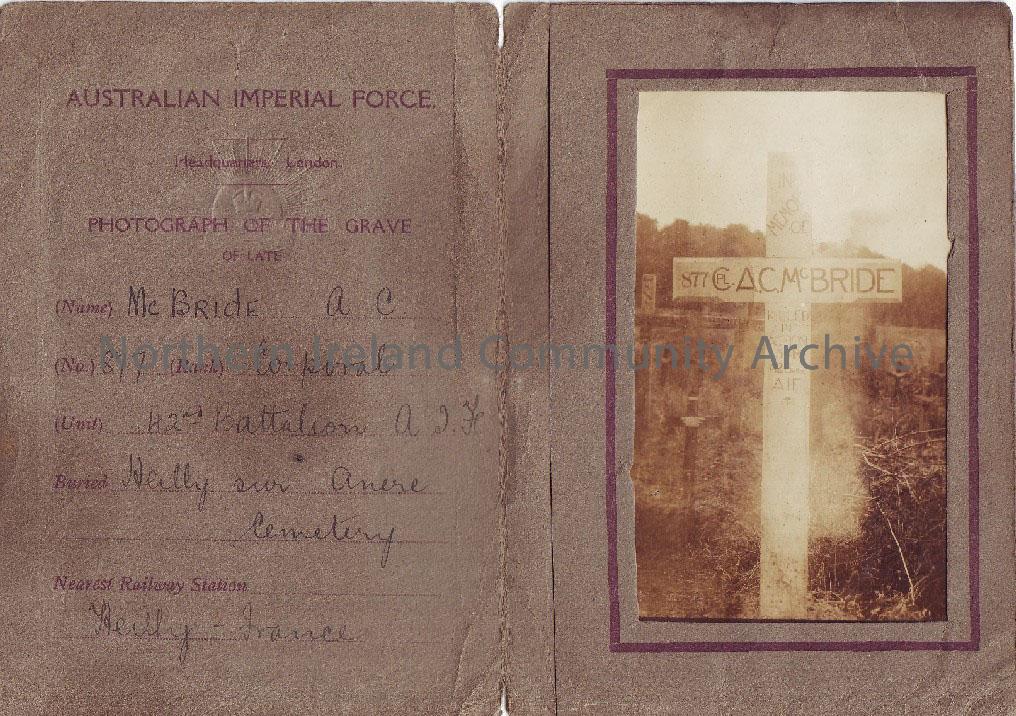 AUSTRALIAN IMPERIAL FORCE.
Headquarters, London.
PHOTOGRAPH OF THE GRAVE
OF LATE
(Name) McBRIDE A C
(No.) 877 (Rank) Corporal
(Unit) 42nd Battalion A I F
Buried Heilly sur Ancre
Cemetery
Nearest Railway Station
Heilly - France
IN
MEMORY
OF
877 CPL A.C. McBRIDE
KILLED
IN
AIF
Northern Ireland Community Archive